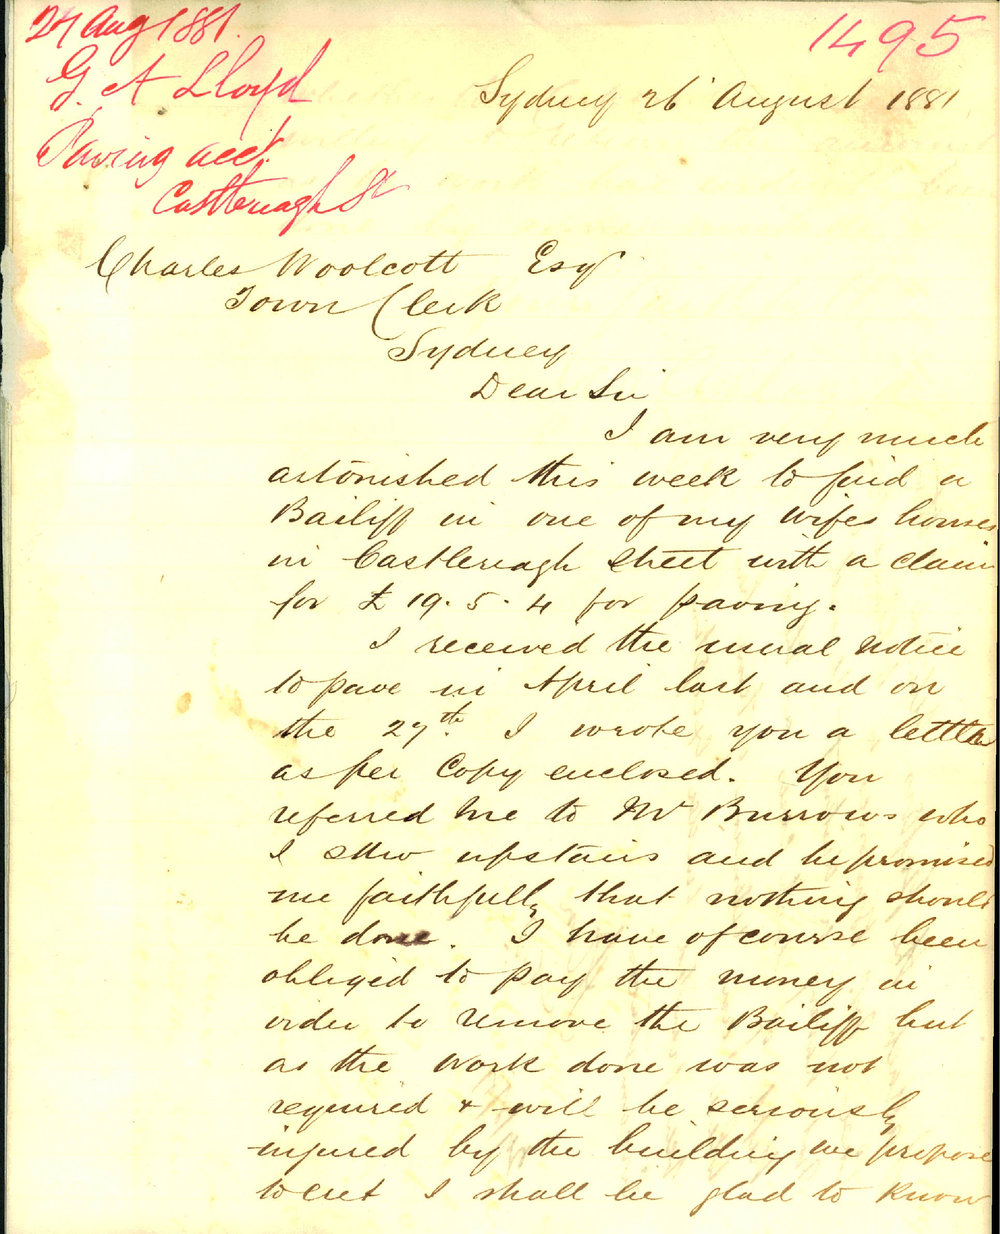 24 Aug 1881.
G. A Lloyd
Paving acct.
Castlereagh St
1495
Sydney 26 August 1881
Charles Woolcott Esqr
Town Clerk
Sydney
Dear Sir
I am very much
astonished this week to find a
Bailiff in one of my wifes houses
in Castlereagh street with a claim
for £19.5.4 for paving.
I received the usual notice
to pave in April last and on
the 27th. I wrote you a letter
as per Copy enclosed. You
referred me to Mr Burrows who
I saw upstairs and he promised
me faithfully that nothing should
be done. I have of course been
obliged to pay the money in
order to remove the Bailiff but
as the work done was not
required & will be seriously
injured by the building we propose
to erect I shall be glad to know